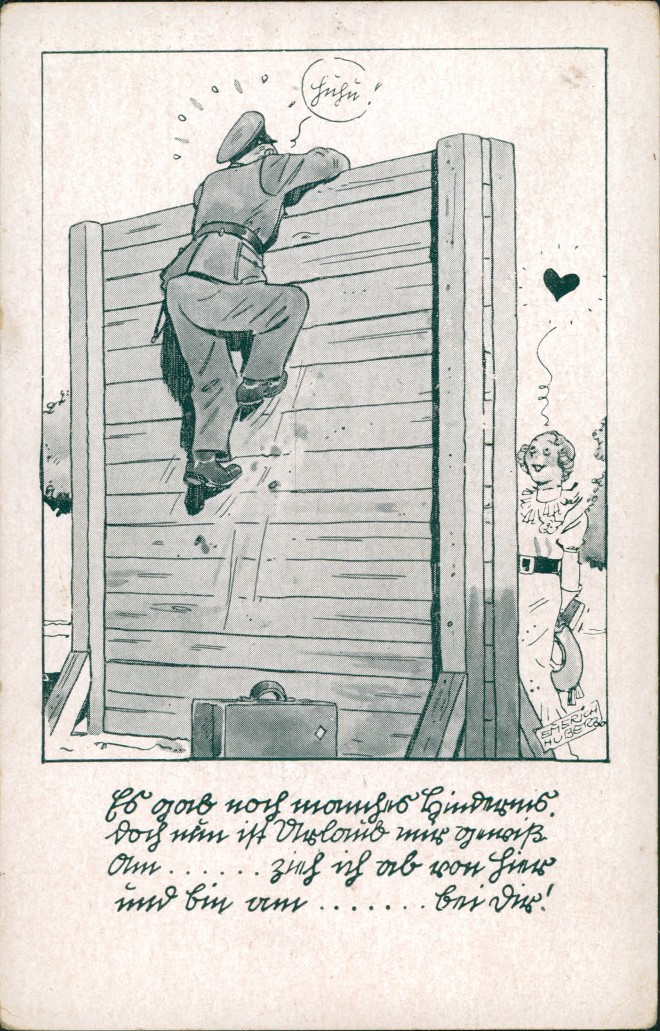 Huhu!
EMERICH
HUBER
Es gab noch manches Hindernis.
Doch nun ist Urlaub mir gewiß
Am ....... zieh ich ab von hier
und bin am ....... bei Dir!